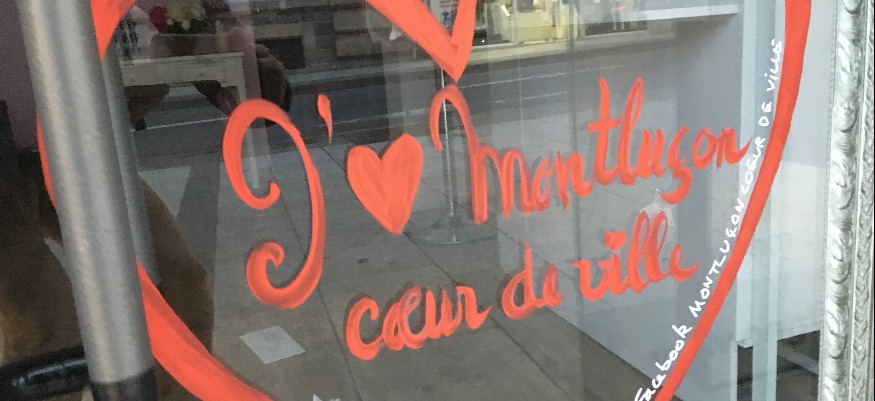 J'❤ Montluçon
cœur de ville
Facebook MONTLUÇON COEUR DE VILLE